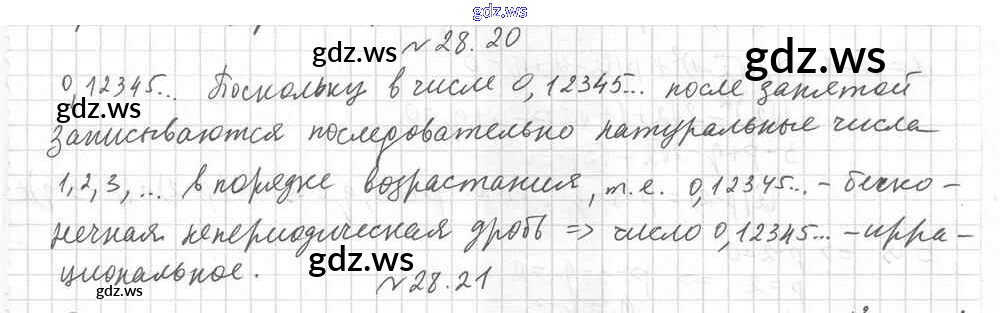 gdz.ws
№28.20
gdz.ws
gdz.ws
0,12345... Поскольку в числе 0,12345... после запятой
gdz.ws
записываются последовательно натуральные числа
1, 2, 3, ... в порядке возрастания, т.е. 0,12345... - беско-
нечная непериодическая дробь => число 0,12345... - ирра-
циональное.
gdz.ws
gdz.ws
№28.21